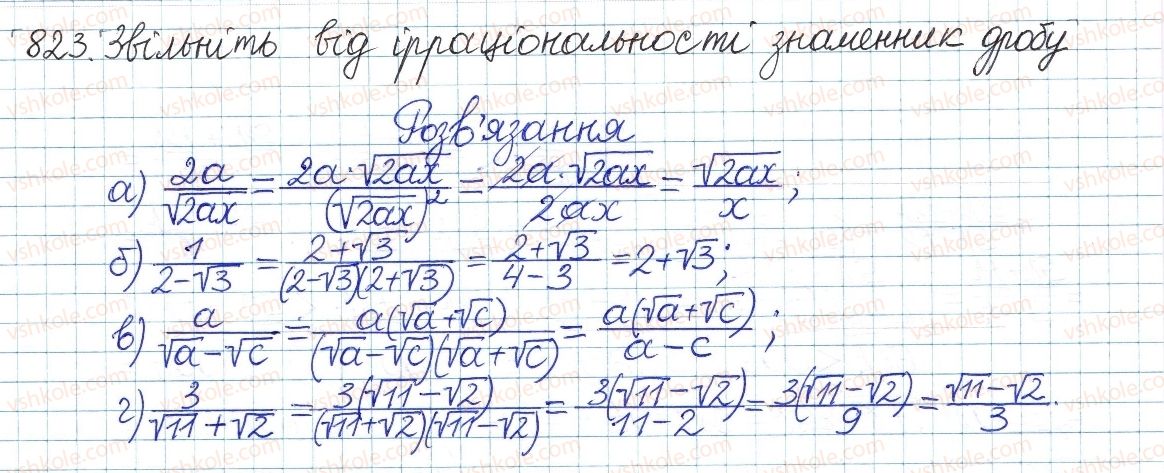 823. Звільніть від ірраціональності знаменник дробу
Розв'язання
а) 2a/√(2ax) = 2a·√(2ax)/(√(2ax))² = 2a·√(2ax)/2ax = √(2ax)/x ;
б) 1/(2-√3) = (2+√3)/((2-√3)(2+√3)) = (2+√3)/(4-3) = 2+√3 ;
в) a/(√a-√c) = a(√a+√c)/((√a-√c)(√a+√c)) = a(√a+√c)/(a-c) ;
г) 3/(√11+√2) = 3(√11-√2)/((√11+√2)(√11-√2)) = 3(√11-√2)/(11-2) = 3(√11-√2)/9 = (√11-√2)/3 .